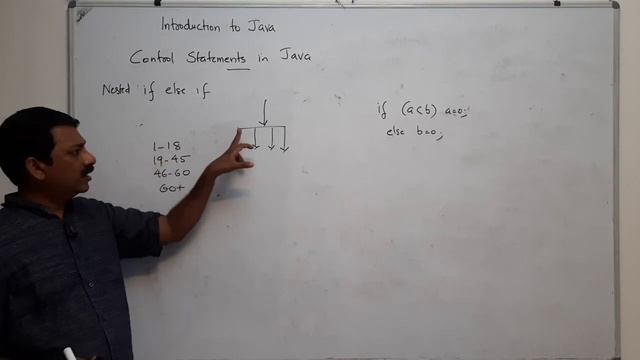 Introduction to Java
Control Statements in Java
Nested if else if
1-18
19-45
46-60
60+
if (a<b) a=0;
else b=0;